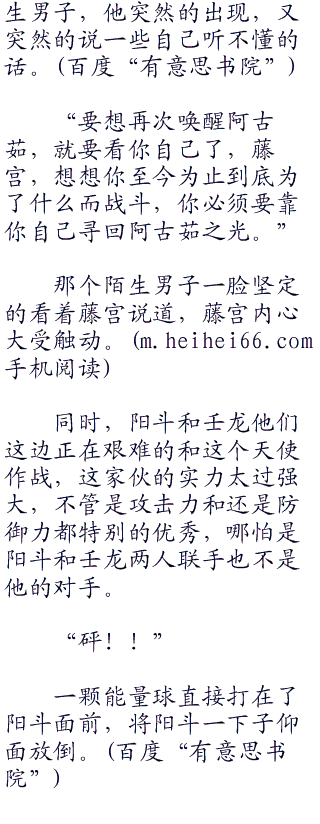 生男子，他突然的出现，又
突然的说一些自己听不懂的
话。(百度“有意思书院”)
“要想再次唤醒阿古
茹，就要看你自己了，藤
宫，想想你至今为止到底为
了什么而战斗，你必须要靠
你自己寻回阿古茹之光。”
那个陌生男子一脸坚定
的看着藤宫说道，藤宫内心
大受触动。(m.heihei66.com
手机阅读)
同时，阳斗和壬龙他们
这边正在艰难的和这个天使
作战，这家伙的实力太过强
大，不管是攻击力和还是防
御力都特别的优秀，哪怕是
阳斗和壬龙两人联手也不是
他的对手。
“砰！！”
一颗能量球直接打在了
阳斗面前，将阳斗一下子仰
面放倒。(百度“有意思书
院”)